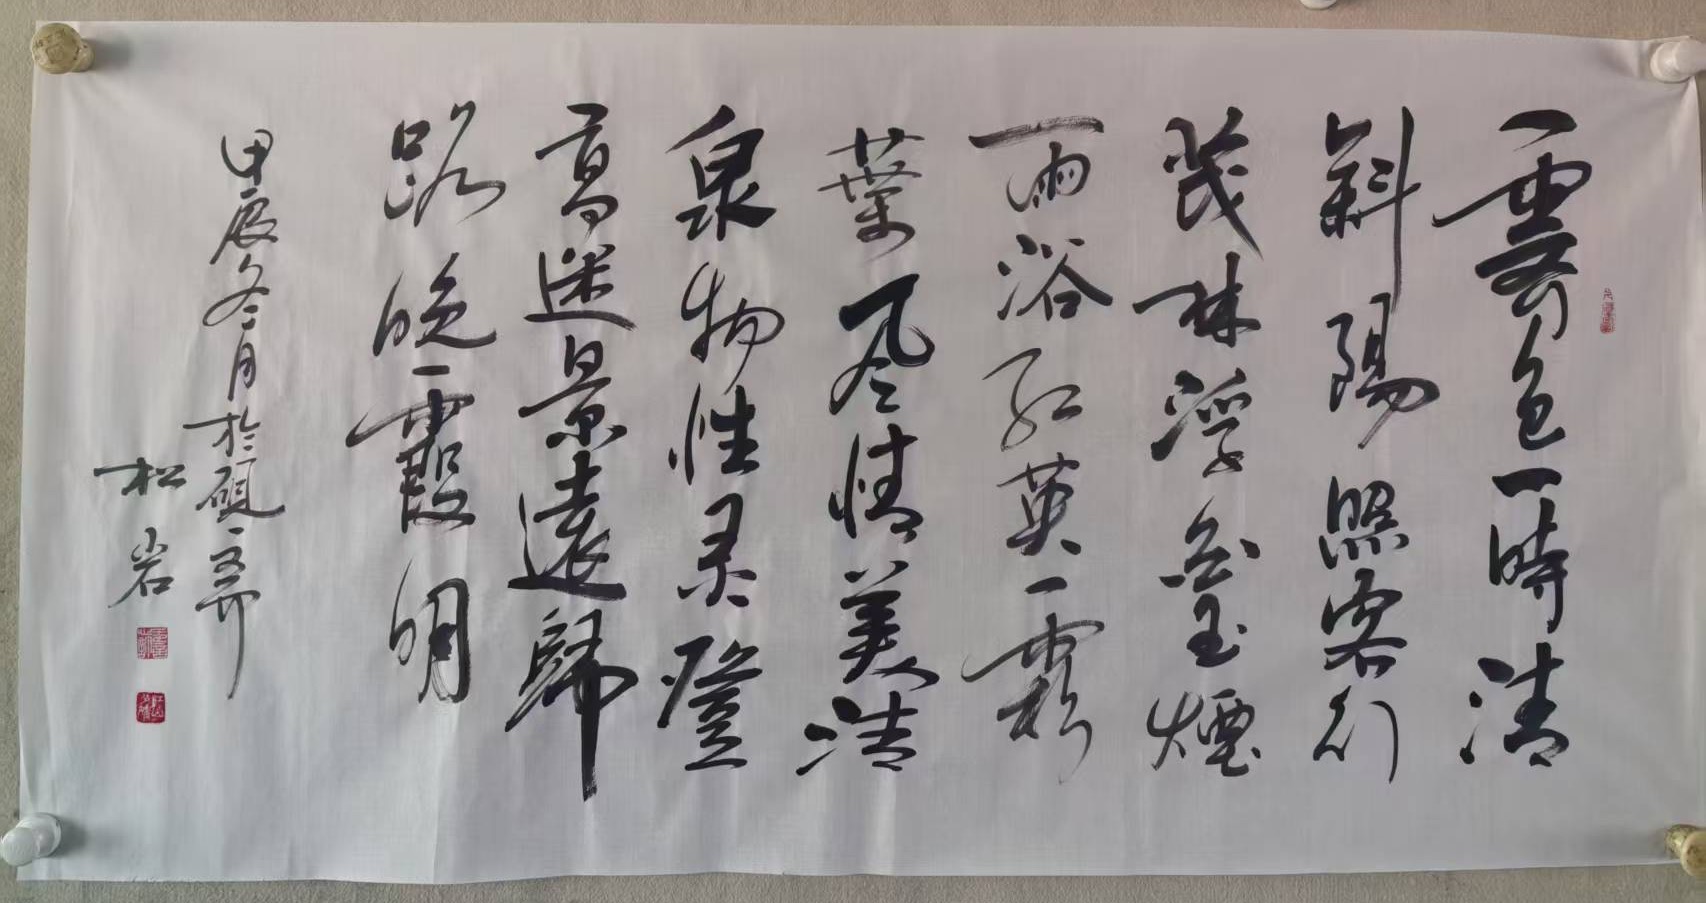 霽色一時清
斜陽照客行
茂林浮玉煙
雨浴紅英霜
葉风情美清
泉物性灵登
高迷景遠歸
路晚霞明
甲辰冬月於硯齋
松岩